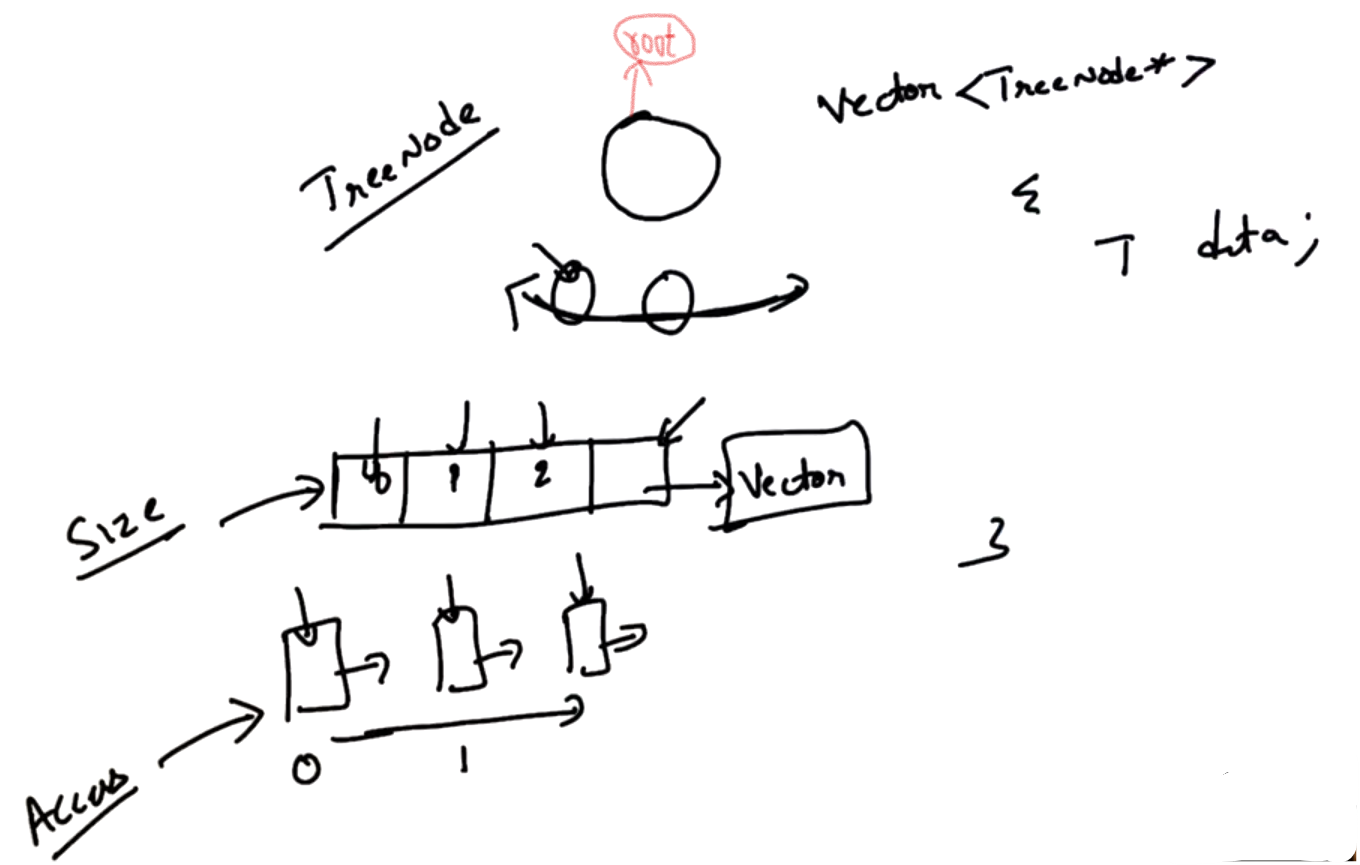 root
TreeNode
Vector <TreeNode*>
{
T data;
}
Size
0 1 2
Vector
0 1
Access